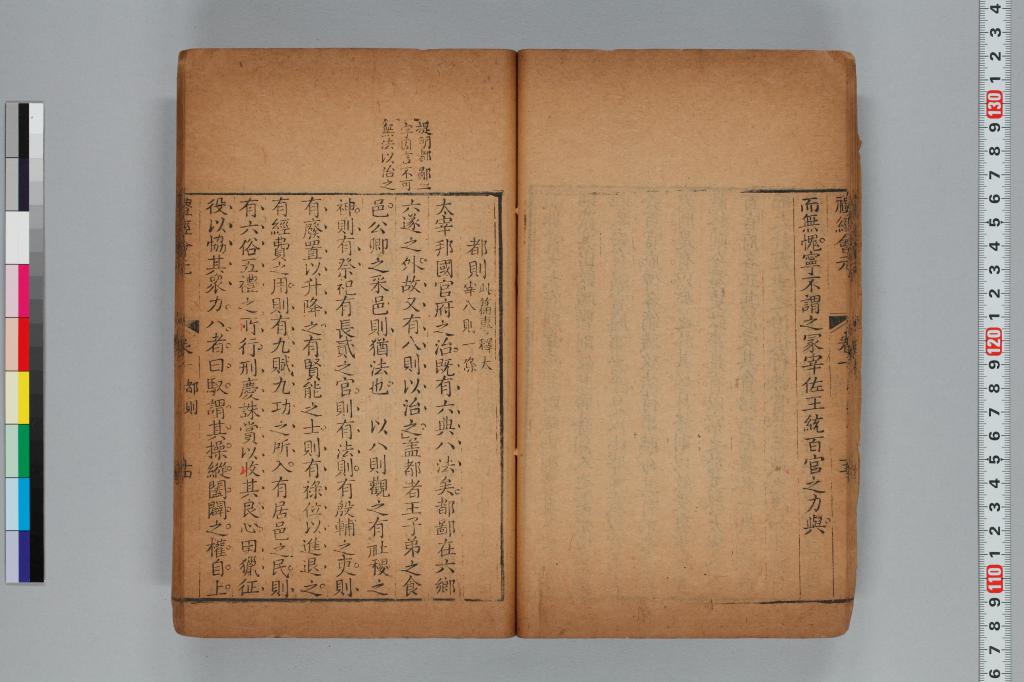 禮經會元
卷一
而無愧寧不謂之冢宰佐王統百官之力與
提明都鄙二
字固言不可
無法以治之
都則此篇專釋大
宰八則一條
太宰邦國官府之治既有六典八法矣都鄙在六鄉
六遂之外故又有八則以治之蓋都者王子弟之食
邑公卿之采邑則猶法也 以八則觀之有社稷之
神則有祭祀有長貳之官則有法則有殷輔之吏則
有廢置以升降之有賢能之士則有祿位以進退之
有經費之用則有九賦九功之所入有居邑之民則
有六俗五禮之所行刑慶誅賞以收其良心田獵征
役以恊其眾力八者曰馭謂其操縱闔闢之權自上
禮經會元
都則
130
120
110